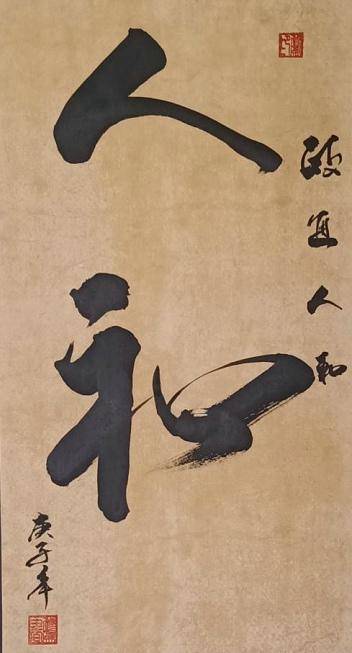 政通人和
人和
庚子年